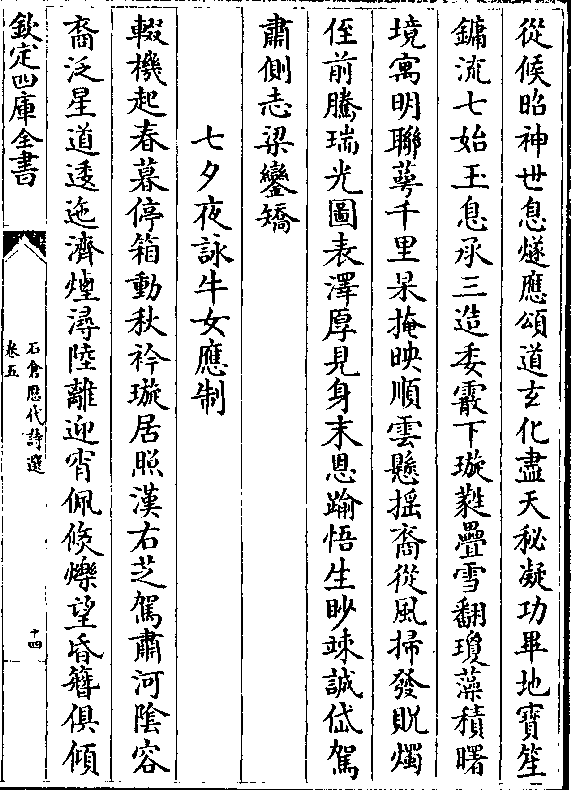 從候昭神世息燧應頌道玄化盡天秘凝功畢地寶笙
鏞流七始玉息承三造委霰下璇蕤疊雪翻瓊藻積曙
境寓明聯萼千里杲掩映順雲懸搖裔從風掃發貺燭
侄前騰瑞光圖表澤厚見身末恩踰悟生眇竦誠岱駕
肅側志梁鑾矯
七夕夜詠牛女應制
輟機起春暮停箱動秋衿璇居照漢右芝駕肅河陰容
裔泛星道逶迤濟煙潯陸離迎宵佩倏爍望昏簪俱傾
欽定四庫全書
石倉歷代詩選
卷五
十四